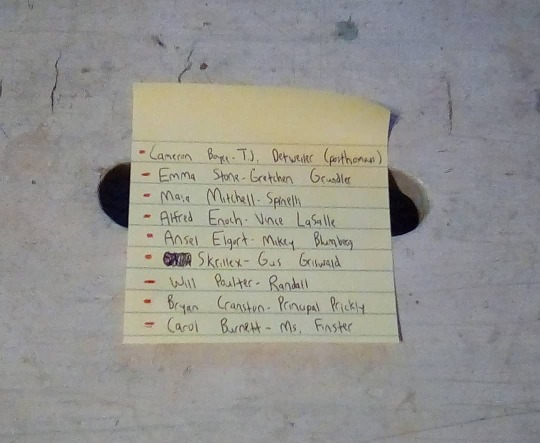 - Cameron Boyce - T.J. Detweiler (posthomus)
- Emma Stone - Gretchen Grundler
- Maia Mitchell - Spinelli
- Alfred Enoch - Vince LaSalle
- Ansel Elgort - Mikey Blumberg
- Skrillex - Gus Griswald
- Will Poulter - Randall
- Bryan Cranston - Principal Prickly
- Carol Burnett - Ms. Finster